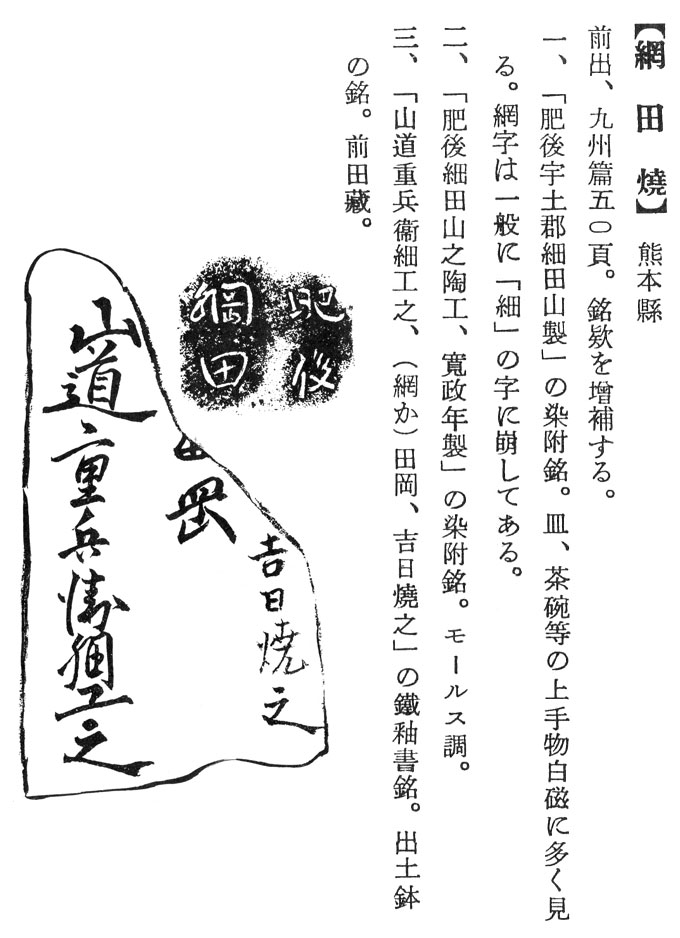 【網田燒】　熊本縣
前出、九州篇五〇頁。銘欵を增補する。
一、「肥後宇土郡細田山製」の染附銘。皿、茶碗等の上手物白磁に多く見
る。網字は一般に「細」の字に崩してある。
二、「肥後細田山之陶工、寬政年製」の染附銘。モールス調。
三、「山道重兵衞細工之、（網か）田岡、吉日燒之」の鐵釉書銘。出土鉢
の銘。前田藏。
肥後
網田
吉日焼之
田岡
山道重兵衛細工之